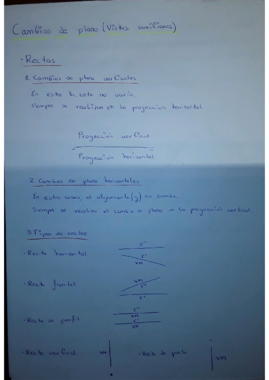 Cambios de plano (Vistas auxiliares)
· Rectas
1. Cambios de plano verticales
En este la cota no varía.
Siempre se realizan en la proyección horizontal.
Proyección vertical
Proyección horizontal
2. Cambios de plano horizontales
En estos casos, el alejamiento (y) no cambia.
Siempre se realiza el cambio de plano en la proyección vertical.
3. Tipos de rectas
· Recta horizontal
r''
VM
· Recta frontal
VM
r''
r'
· Recta de perfil
r''
VM
r'
· Recta vertical
· Recta de punta
VM